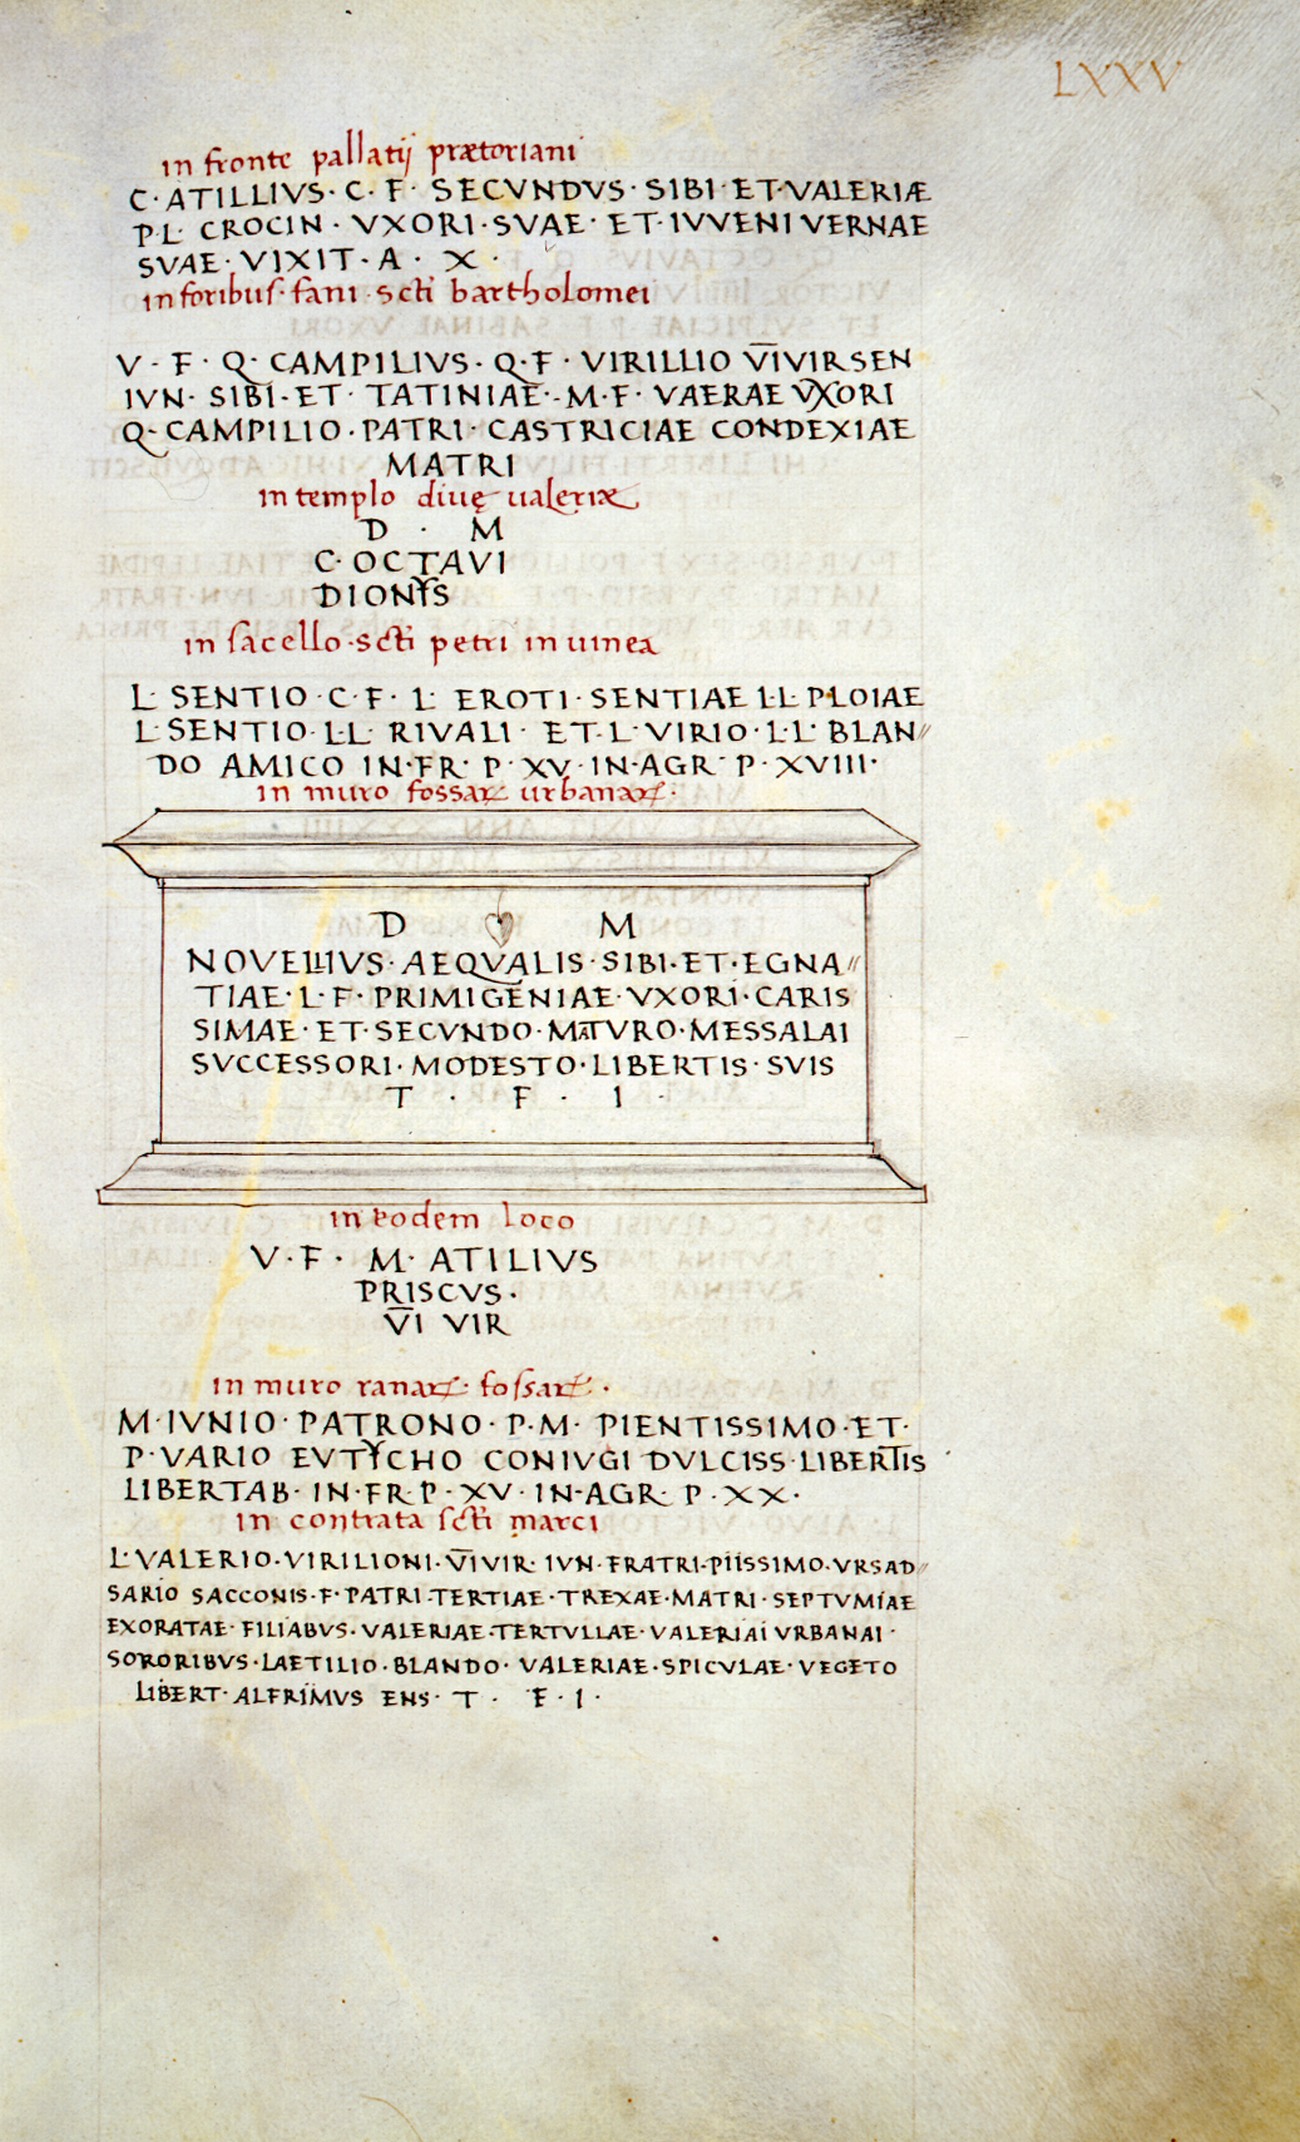 LXXV
in fronte pallatij prætoriani
C· ATILLIVS· C· F· SECVNDVS· SIBI· ET· VALERIÆ
P·L· CROCIN· VXORI· SVAE· ET· IVVENI VERNAE
SVAE· VIXIT· A· X·
in foribus· fani· scti bartholomei
V· F· Q· CAMPILIVS· Q·F· VIRILLIO V̅I̅VIR SEN
IVN· SIBI· ET· TATINIAE·-M·F· VAERAE VXORI
Q· CAMPILIO· PATRI· CASTRICIAE CONDEXIAE
MATRI
in templo diuę ualeriæ
D · M
C· OCTAVI
DIONYS
in sacello· scti petri in uinea
L· SENTIO· C· F· L· EROTI· SENTIAE L·L· PLOIAE
L· SENTIO· L·L· RIVALI· ET· L· VIRIO· L·L· BLAN//
DO AMICO IN·FR· P· XV· IN·AGR· P· XVIII·
in muro fossaꝝ urbanaꝝ·
D ❦ M
NOVELLIVS· AEQVALIS· SIBI· ET· EGNA//
TIAE· L· F· PRIMIGENIAE· VXORI· CARIS
SIMAE· ET· SECVNDO· MATVRO· MESSALAI
SVCCESSORI· MODESTO· LIBERTIS· SVIS
T · F · I ·
in eodem loco
V· F· M· ATILIVS
PRISCVS·
V̅I VIR
in muro ranaꝝ· fossaꝝ·
M· IVNIO· PATRONO· P·M· PIENTISSIMO· ET·
P· VARIO EVTYCHO CONIVGI DVLCISS· LIBERTIS
LIBERTAB· IN·FR· P· XV· IN-AGR· P· XX·
in contrata scti marci
L· VALERIO· VIRILIONI· V̅I̅VIR· IVN· FRATRI· PIISSIMO· VRSAD//
SARIO SACCONIS· F· PATRI· TERTIAE· TREXAE· MATRI· SEPTVMIAE
EXORATAE· FILIABVS· VALERIAE· TERTVLLAE· VALERIAI VRBANAI·
SORORIBVS· LAETILIO· BLANDO· VALERIAE· SPICVLAE· VEGETO
LIBERT· ALFRIMVS ENS· T· F· I·